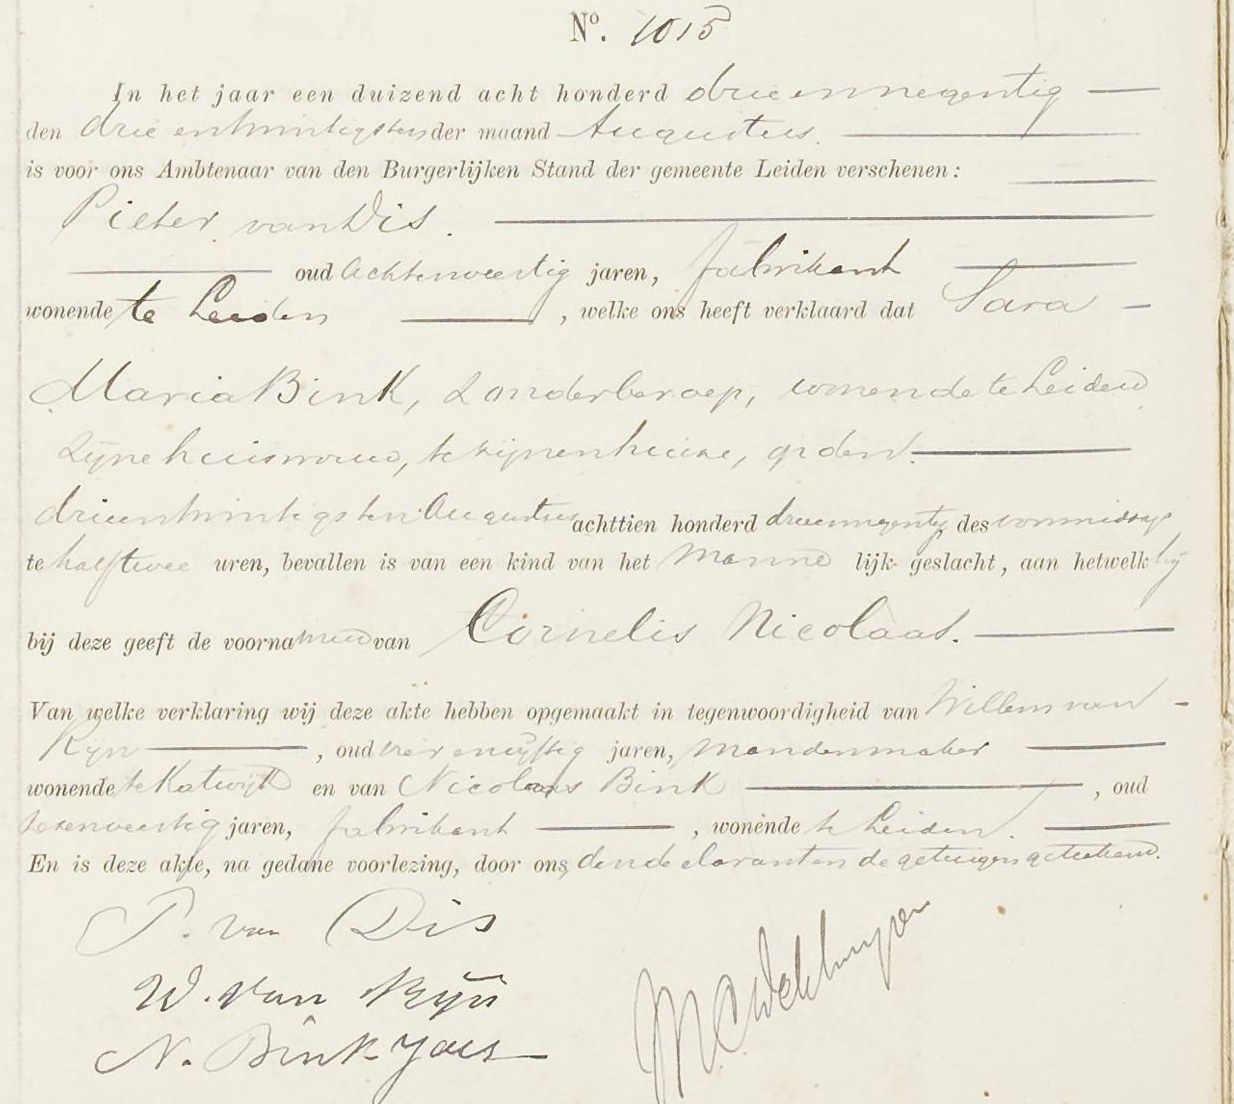 No. 1015
In het jaar een duizend acht honderd drie en negentig
den drie en twintigsten der maand Augustus.
is voor ons Ambtenaar van den Burgerlijken Stand der gemeente Leiden verschenen:
Pieter van Dis.
oud achtenveertig jaren, fabrikant
wonende te Leiden, welke ons heeft verklaard dat Sara
Maria Bink, zonder beroep, wonende te Leiden
zijne huisvrouw, te zijnen huize, op den
drieentwintigsten Augustus achttien honderd drieennegentig des voormiddags
te half twee uren, bevallen is van een kind van het manne lijk geslacht, aan hetwelk hij
bij deze geeft de voornamen van Cornelis Nicolaas.
Van welke verklaring wij deze akte hebben opgemaakt in tegenwoordigheid van Willem van
Rijn, oud vier en vijftig jaren, mandenmaker
wonende te Katwijk en van Nicolaas Bink, oud
zesenveertig jaren, fabrikant, wonende te Leiden.
En is deze akte, na gedane voorlezing, door ons, den declarant en de getuigen geteekend.
P. van Dis
W. van Rijn
N. Bink